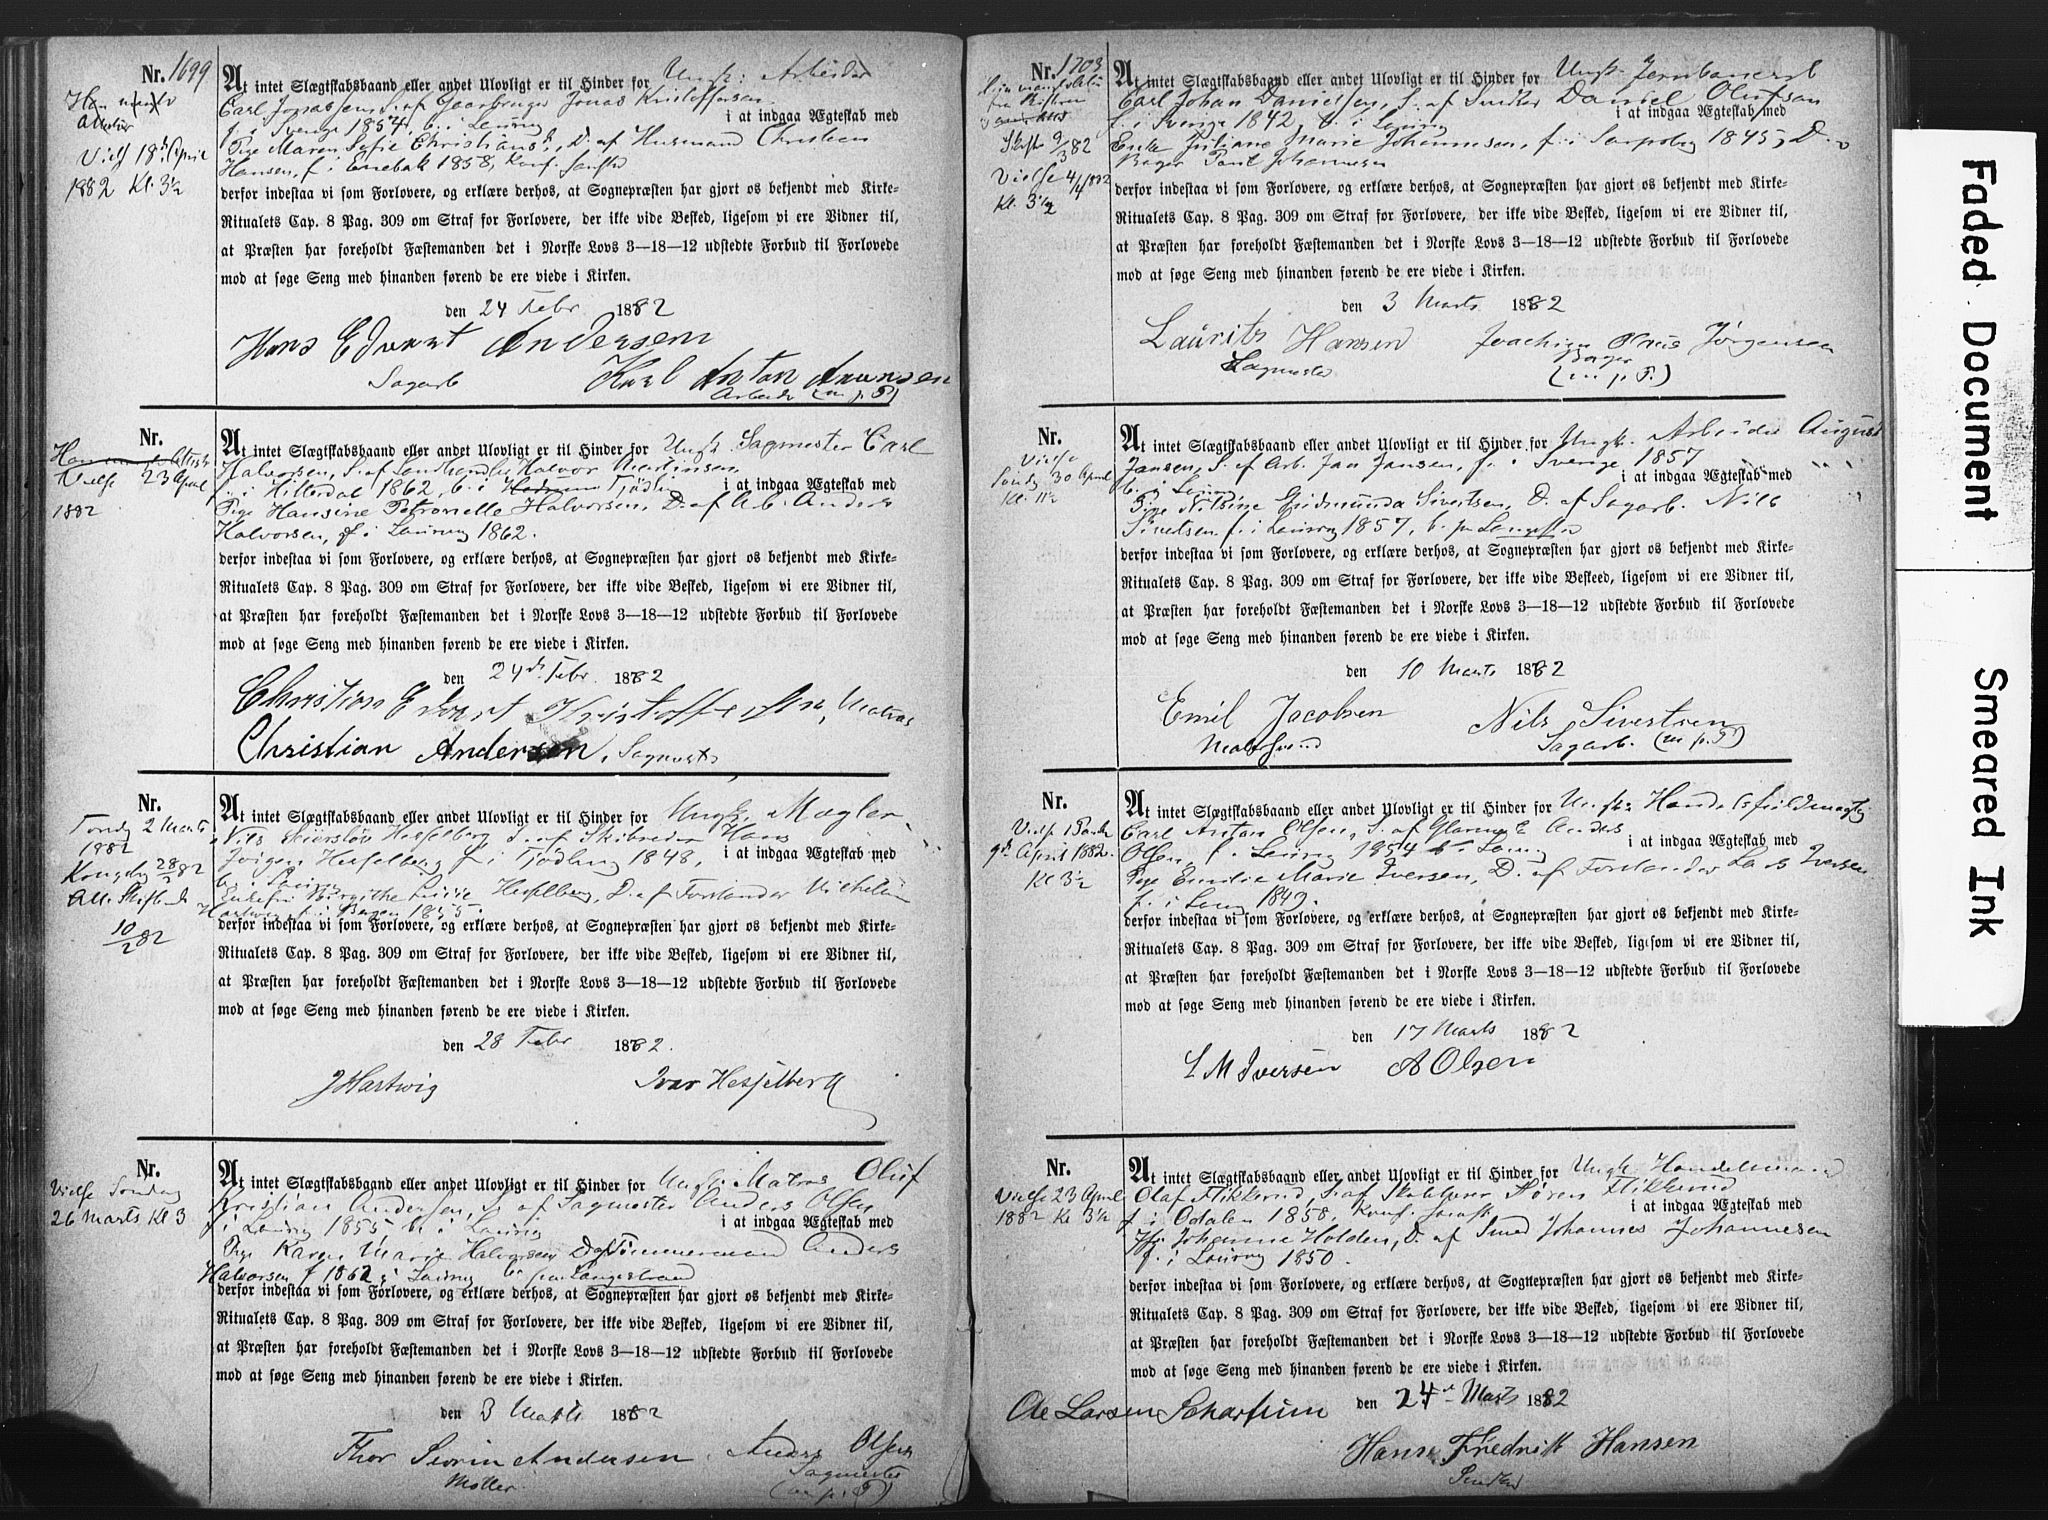 Nr. 1699
At intet Slægtskabsbaand eller andet Ulovligt er til Hinder for Ungk: Arbeider
Carl Jonassen, S. af Gaardbruger Jonas Kristoffersen
f. i Sverige 1854, b. i Laurvig i at indgaa Ægteskab med
Pige Maren Sofie Christians, D. af Husmand Christian
Hansen, f. i Enebak 1858, Konf.
Vielse 18de April
1882 Kl. 3½
derfor indestaa vi som Forlovere, og erklære derhos, at Sognepræsten har gjort os bekjendt med Kirke-
Ritualets Cap. 8 Pag. 309 om Straf for Forlovere, der ikke vide Besked, ligesom vi ere Vidner til,
at Præsten har foreholdt Fæstemanden det i Norske Lovs 3—18—12 udstedte Forbud til Forlovede
mod at søge Seng med hinanden førend de ere viede i Kirken.
den 24 Febr 1882
Hans Edvart Andersen
Sagarb
Karl Anton Amundsen
Arbeider (m. p. P)
Nr.
Vielse 23 April
1882
At intet Slægtskabsbaand eller andet Ulovligt er til Hinder for Ungk Sagmester Carl
Halvorsen, S. af Halvor Martinsen
f. i Hitterdal 1862, b. i Tjølling i at indgaa Ægteskab med
Pige Hansine Petronelle Halvorsen, D. af Arb. Anders
Halvorsen, f. i Laurvig 1862.
derfor indestaa vi som Forlovere, og erklære derhos, at Sognepræsten har gjort os bekjendt med Kirke-
Ritualets Cap. 8 Pag. 309 om Straf for Forlovere, der ikke vide Besked, ligesom vi ere Vidner til,
at Præsten har foreholdt Fæstemanden det i Norske Lovs 3—18—12 udstedte Forbud til Forlovede
mod at søge Seng med hinanden førend de ere viede i Kirken.
den 24de Febr. 1882
Christian Edvart Kristoffersen, Matros
Christian Andersen, Sagmester
Nr.
Torsdg 2 Marts
1882
Kongebr 28/2 82
Att. Skifted
10/2 82
At intet Slægtskabsbaand eller andet Ulovligt er til Hinder for Ungk. Mægler
Nils Hesselberg S. af Skibsreder Hans
Jørgen Hesselberg f. i Tjølling 1848, i at indgaa Ægteskab med
b. i Laurvig
Enkefru Birgithe Hesselberg, D. af Forstander Vilhelm
Hartwig, f. i Bergen 1855.
derfor indestaa vi som Forlovere, og erklære derhos, at Sognepræsten har gjort os bekjendt med Kirke-
Ritualets Cap. 8 Pag. 309 om Straf for Forlovere, der ikke vide Besked, ligesom vi ere Vidner til,
at Præsten har foreholdt Fæstemanden det i Norske Lovs 3—18—12 udstedte Forbud til Forlovede
mod at søge Seng med hinanden førend de ere viede i Kirken.
den 28 Febr 1882.
J Hartwig Ivar Hesselberg
Nr.
Vielse Søndag
26 Marts Kl 3
At intet Slægtskabsbaand eller andet Ulovligt er til Hinder for Ungk. Matros Oluf
Kristian Andersen, S. af Sagmester Anders Olsen
f. i Laurvig 1855 b. i Laurvig i at indgaa Ægteskab med
Pige Karen Marie Halvorsen D. af Tømmermand Anders
Halvorsen f 1862 i Laurvig b. paa Langestrand
derfor indestaa vi som Forlovere, og erklære derhos, at Sognepræsten har gjort os bekjendt med Kirke-
Ritualets Cap. 8 Pag. 309 om Straf for Forlovere, der ikke vide Besked, ligesom vi ere Vidner til,
at Præsten har foreholdt Fæstemanden det i Norske Lovs 3—18—12 udstedte Forbud til Forlovede
mod at søge Seng med hinanden førend de ere viede i Kirken.
den 3 Marts 1882
Thor Severin Andersen Anders Olsen
Møller Sagmester
(m. p. P)
Nr. 1703
9/3 82
Vielse 4/4 1882
Kl. 3½
At intet Slægtskabsbaand eller andet Ulovligt er til Hinder for Ungk. Jernbanearb
Carl Johan Danielsen, S. af Snedker Daniel Olufsen
f. i Sverige 1842, b. i Laurvig i at indgaa Ægteskab med
Enke Juliane Marie Johannesen, f. i Sarpsborg 1845, D. a
Bager Johannesen
derfor indestaa vi som Forlovere, og erklære derhos, at Sognepræsten har gjort os bekjendt med Kirke-
Ritualets Cap. 8 Pag. 309 om Straf for Forlovere, der ikke vide Besked, ligesom vi ere Vidner til,
at Præsten har foreholdt Fæstemanden det i Norske Lovs 3—18—12 udstedte Forbud til Forlovede
mod at søge Seng med hinanden førend de ere viede i Kirken.
den 3 Marts 1882
Laurits Hansen Joachim Claus Jørgensen
Sagmester Bager
(m p. P.)
Nr.
Vielse
Søndg 30 April
Kl. 11½
At intet Slægtskabsbaand eller andet Ulovligt er til Hinder for Ungk. Arbeider August
Jansen, S. af Arb. Jan Jansen, f. i Sverige 1857 i at indgaa Ægteskab med
b. i Laurvig
Pige Nilsine Gudmunda Sivertsen, D. af Sagarb. Nils
Sivertsen f. i Laurvig 1857, b. pa Langestr
derfor indestaa vi som Forlovere, og erklære derhos, at Sognepræsten har gjort os bekjendt med Kirke-
Ritualets Cap. 8 Pag. 309 om Straf for Forlovere, der ikke vide Beskeed, ligesom vi ere Vidner til,
at Præsten har foreholdt Fæstemanden det i Norske Lovs 3—18—12 udstedte Forbud til Forlovede
mod at søge Seng med hinanden førend de ere viede i Kirken.
den 10 Marts 1882
Emil Jacobsen Nils Sivertsen
Malersvend Sagarb. (m p. P)
Nr.
9de April 1882.
Kl 3½
At intet Slægtskabsbaand eller andet Ulovligt er til Hinder for Ungk. Handelsfuldmægtig
Carl Anton Olsen, S. af Glarm. E Anders
Olsen, f. i Laurvig 1854 b. i Laurvig i at indgaa Ægteskab med
Pige Emilie Marie Iversen, D. af Forstander Lars Iversen
f. i Laurvig 1849.
derfor indestaa vi som Forlovere, og erklære derhos, at Sognepræsten har gjort os bekjendt med Kirke-
Ritualets Cap. 8 Pag. 309 om Straf for Forlovere, der ikke vide Besked, ligesom vi ere Vidner til,
at Præsten har foreholdt Fæstemanden det i Norske Lovs 3—18—12 udstedte Forbud til Forlovede
mod at søge Seng med hinanden førend de ere viede i Kirken.
den 17 Marts 1882
L M Iversen A Olsen
Nr.
Vielse 23 April
1882 Kl 3½
At intet Slægtskabsbaand eller andet Ulovligt er til Hinder for Ungk Handelsmand
Olaf Flikkerud, S. af Søren Flikkerud
f. i Odalen 1858, Konf. i at indgaa Ægteskab med
Johanne Holden, D. af Smed Johannes Johannesen
f. i Laurvig 1850.
derfor indestaa vi som Forlovere, og erklære derhos, at Sognepræsten har gjort os bekjendt med Kirke-
Ritualets Cap. 8 Pag. 309 om Straf for Forlovere, der ikke vide Besked, ligesom vi ere Vidner til,
at Præsten har foreholdt Fæstemanden det i Norske Lovs 3—18—12 udstedte Forbud til Forlovede
mod at søge Seng med hinanden førend de ere viede i Kirken.
Ole Larsen Schartum den 24de Marts 1882
Hans Fredrik Hansen
Snedker
Faded Document
Smeared Ink